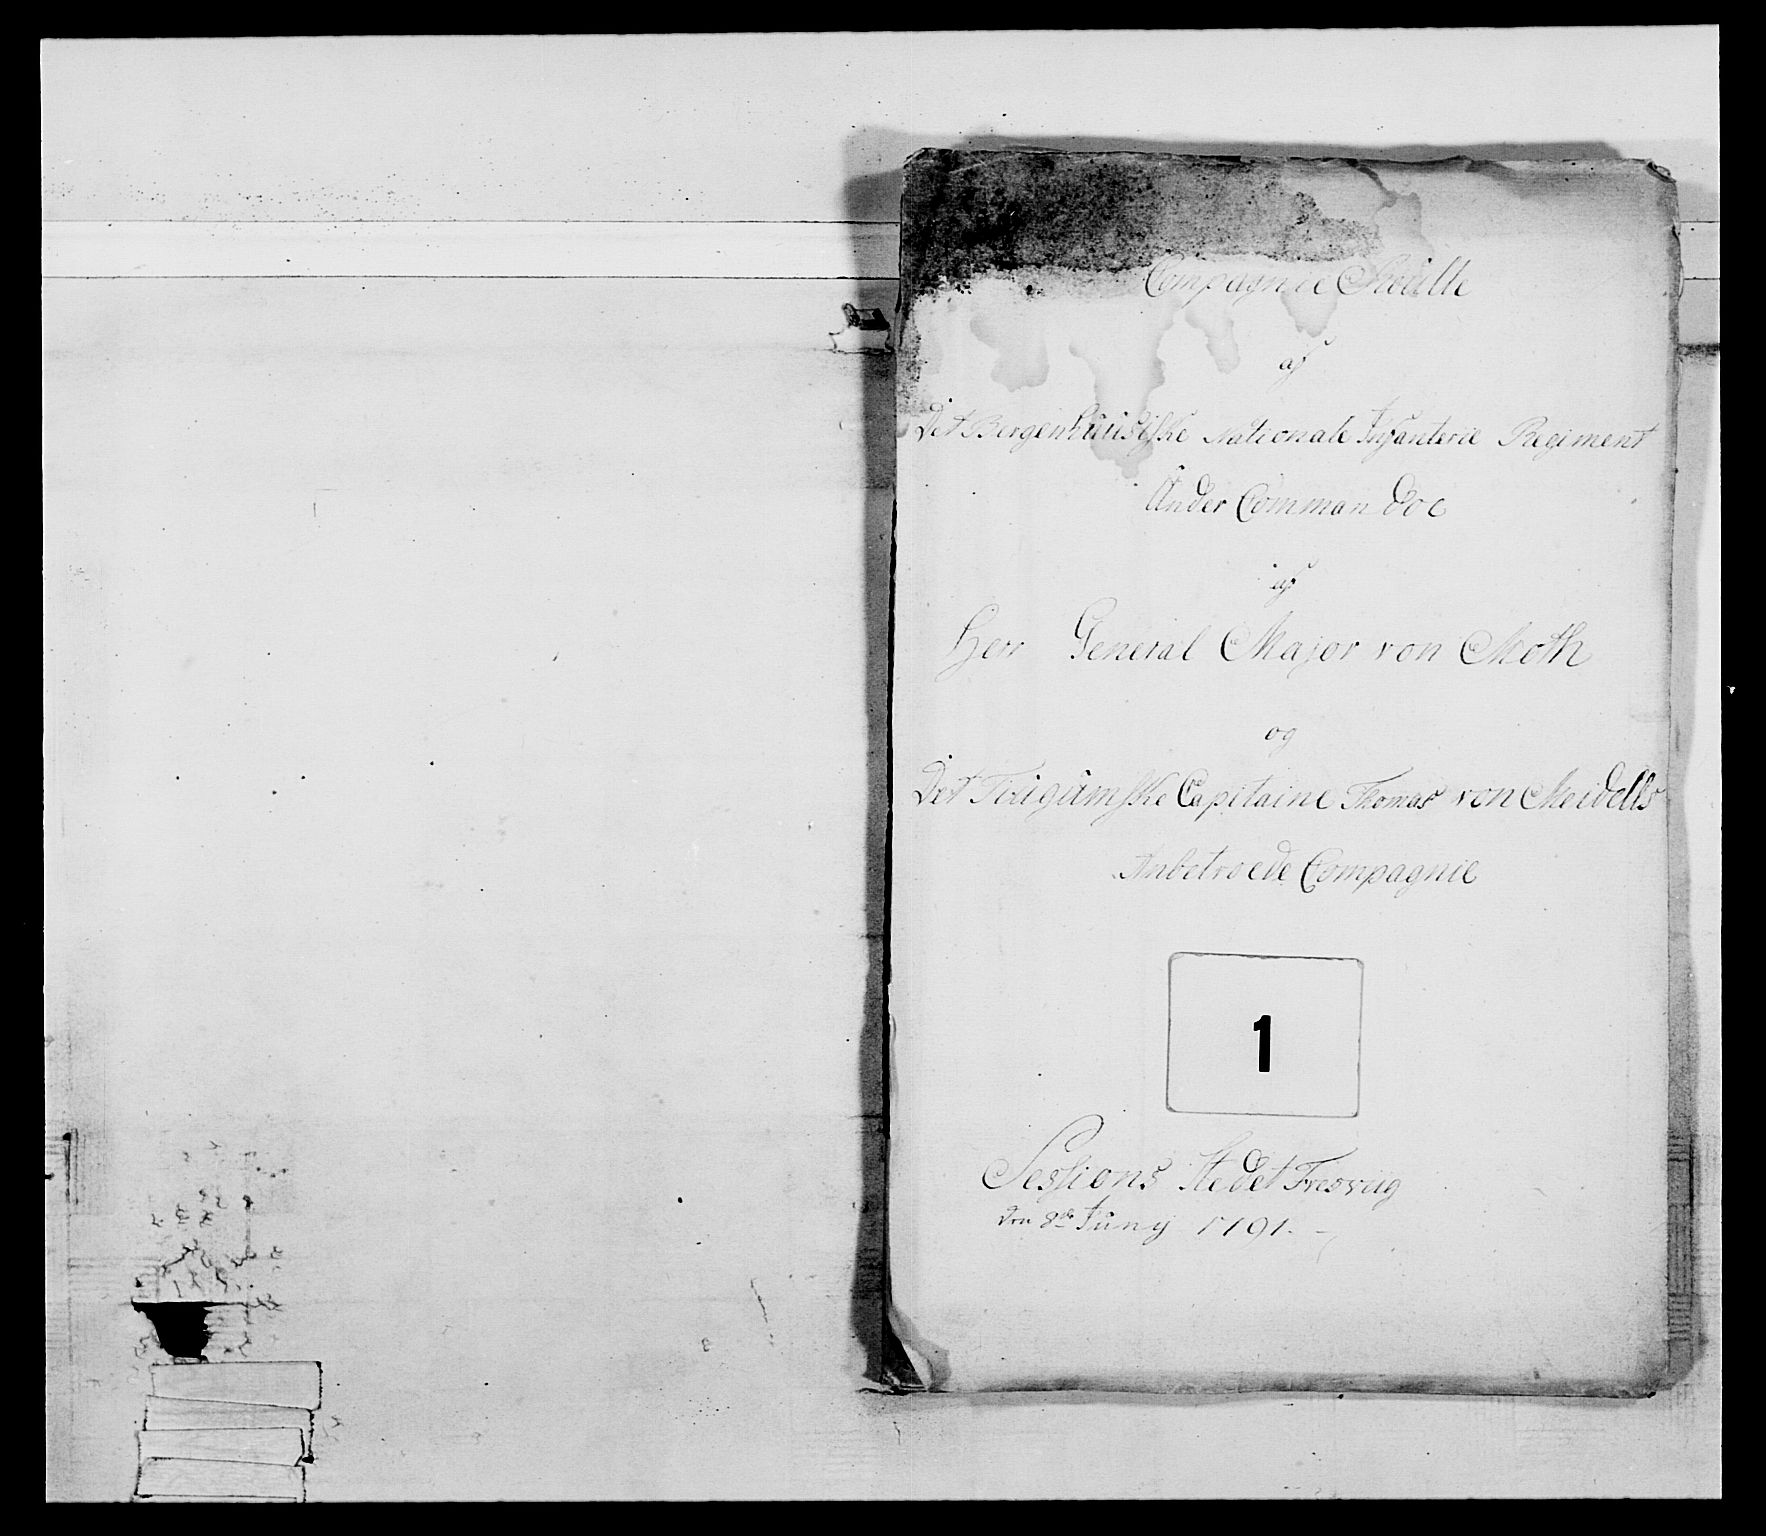 Compagnie Roulle
af
Det Bergenhuusiske Nationale Infanterie Regiment
Under Commandoe
af
Herr General Major von Moth
og
Det Capitaine Thomas von Meidells
Anbetroede Compagnie
1
Sessions Stedet Fresvig
den 8de Juny 1791.